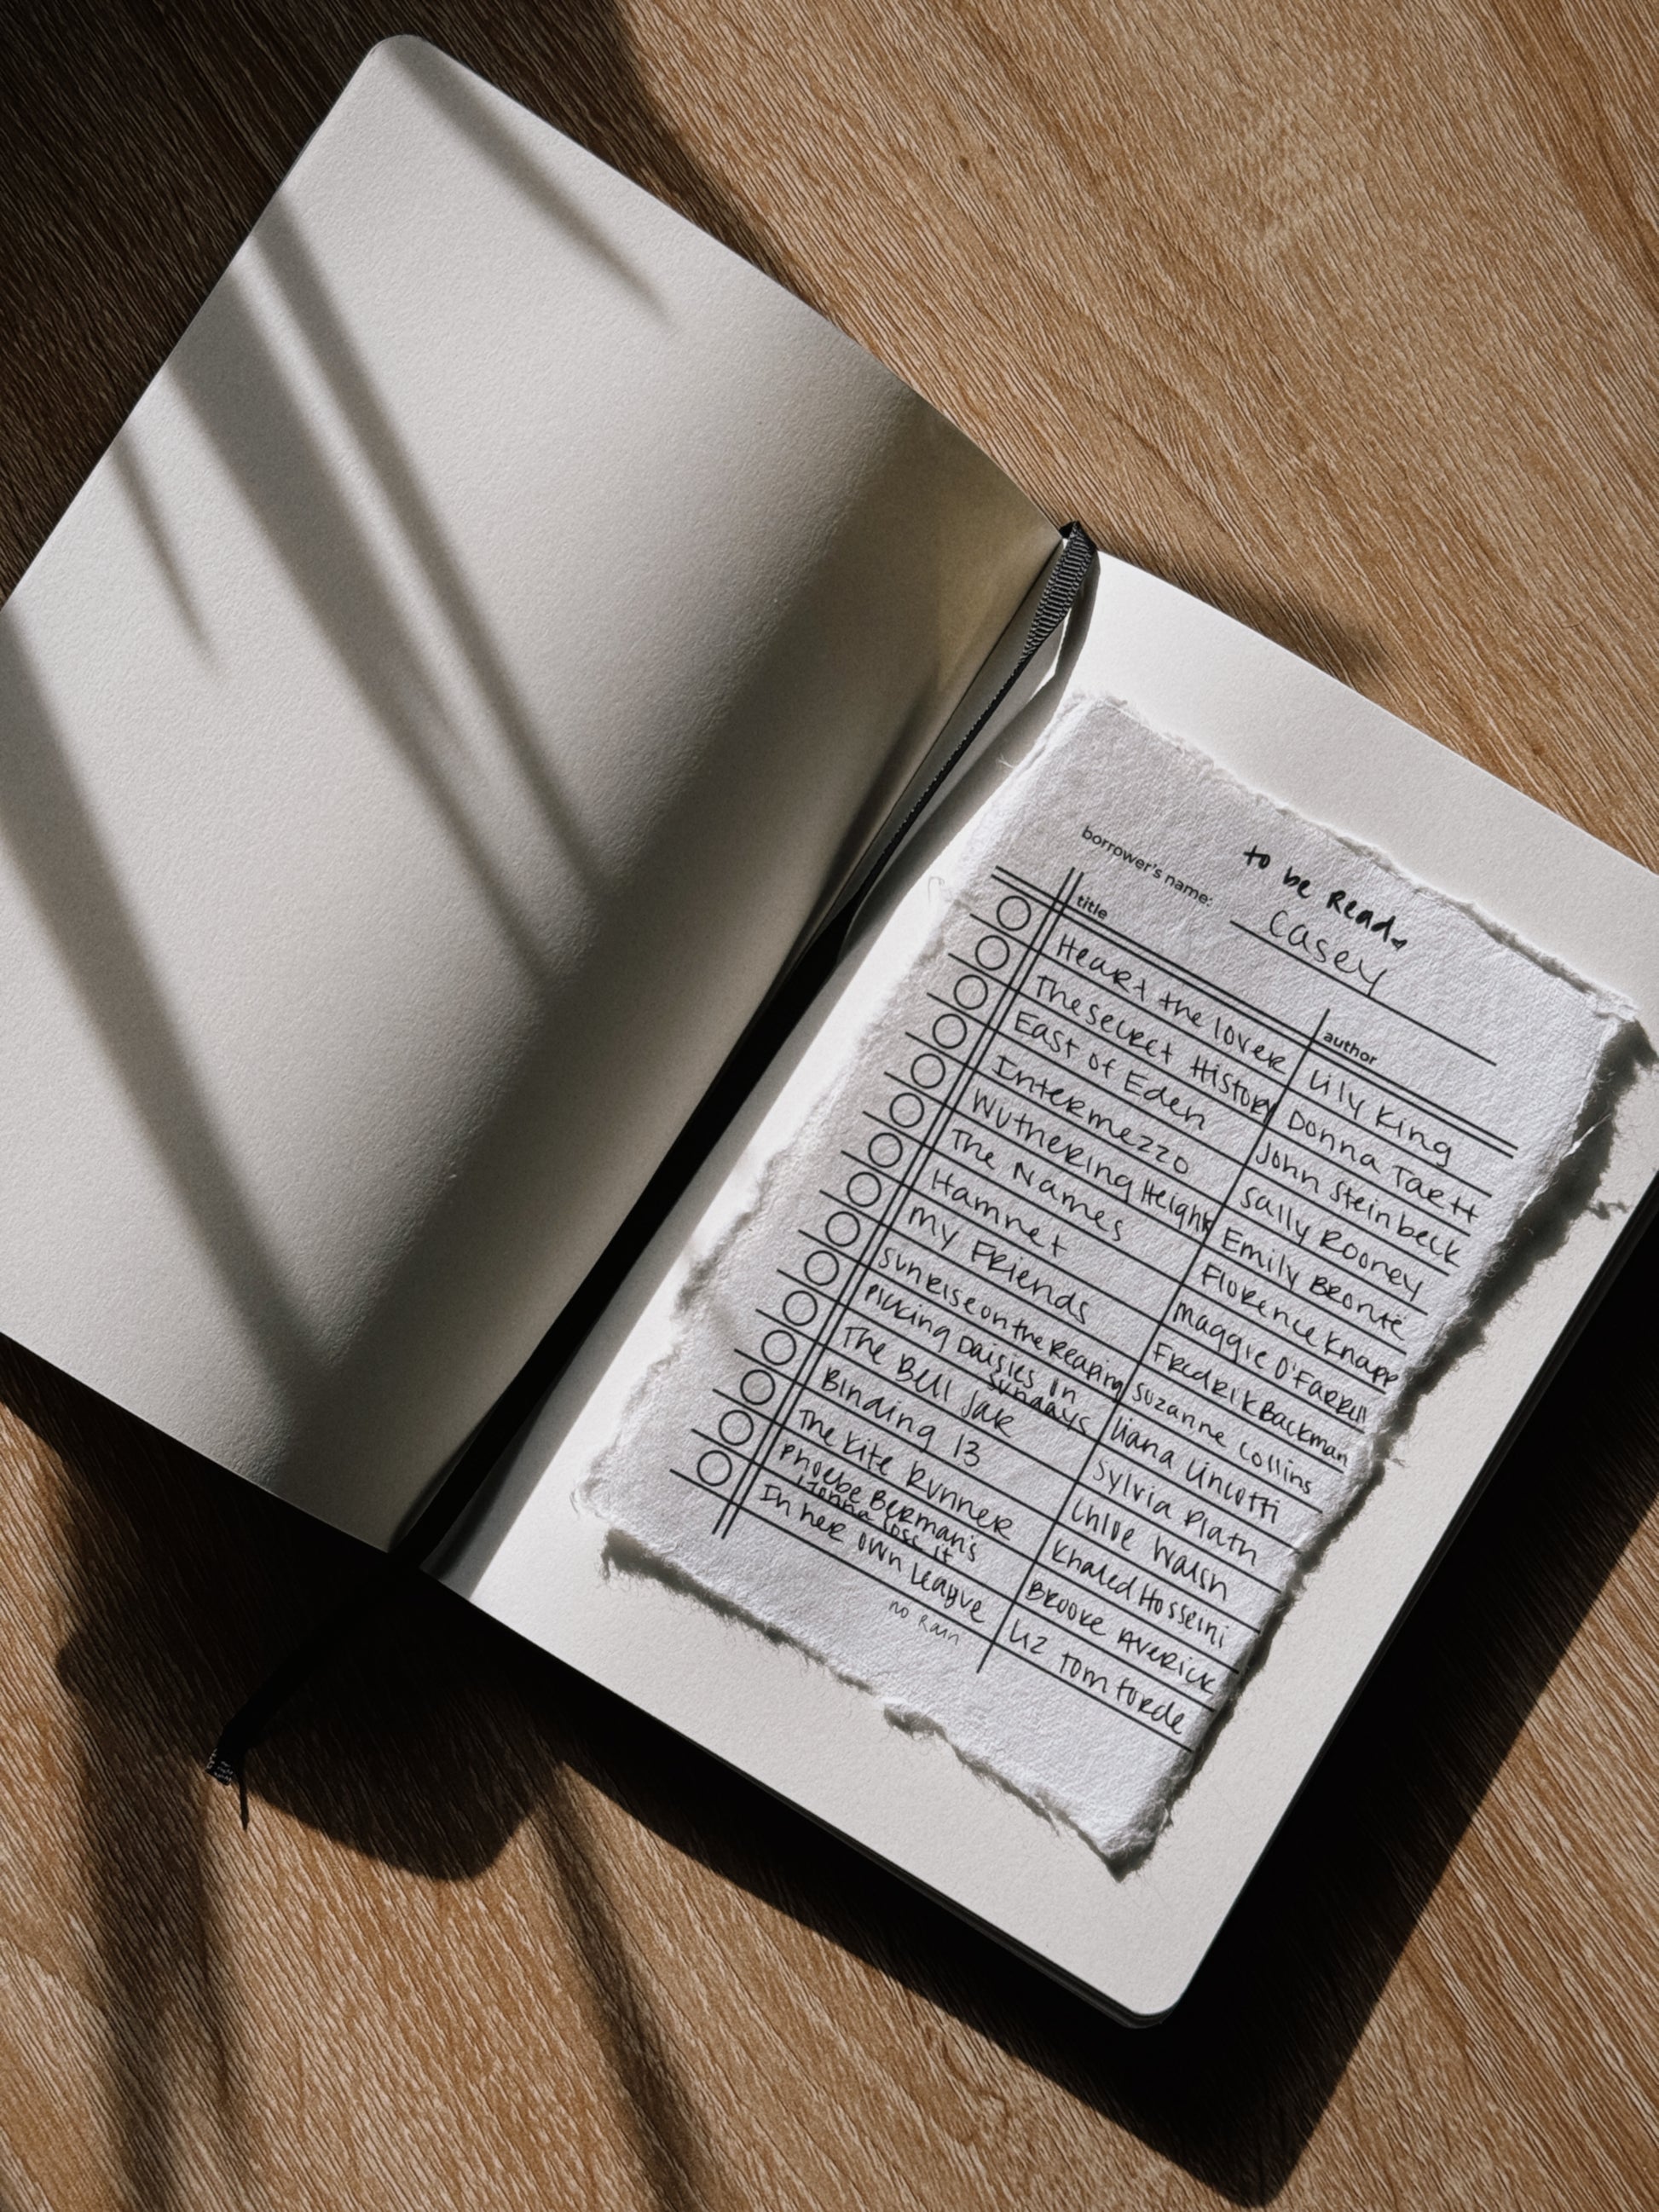 to be Read
borrower's name: Casey
title author
Heart the lover Lily King
The Secret History Donna Tartt
East of Eden John Steinbeck
Intermezzo Sally Rooney
Wuthering Heights Emily Brontë
The Names Florence Knapp
Hamnet Maggie O'Farrell
My Friends Fredrik Backman
Sunrise on the Reaping Suzanne Collins
Picking Daisies on Sundays Liana Cincotti
The Bell Jar Sylvia Plath
Binding 13 Chloe Walsh
The Kite Runner Khaled Hosseini
Phoebe Berman's Gonna Lose It Brooke Averick
In her own league Liz Tomforde
no Rain